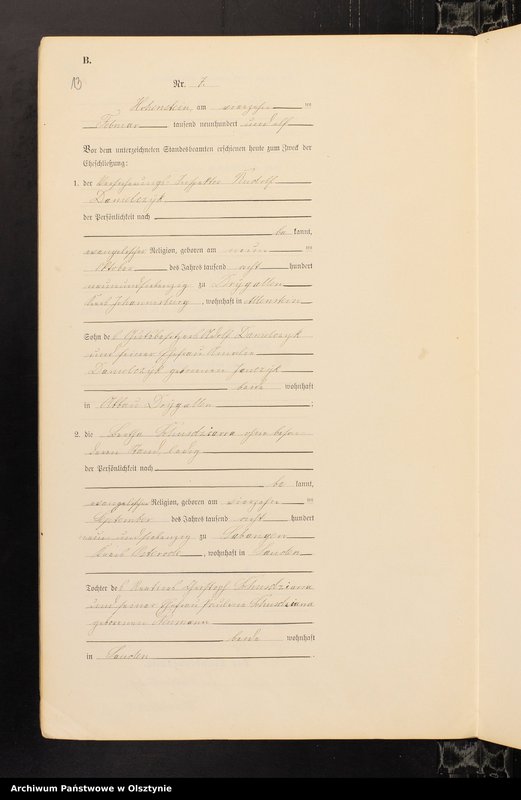 B.
13
Nr. 7.
Hohenstein, am vierzehn ten
Februar tausend neunhundert und elf
Vor dem unterzeichneten Standesbeamten erschienen heute zum Zweck der
Eheschließung:
1. der Versicherungs-Inspektor Rudolf
Danulczyk
der Persönlichkeit nach
be kannt,
evangelischer Religion, geboren am neun ten
Oktober des Jahres tausend acht hundert
neunundsiebenzig zu Drygallen
Kreis Johannisburg, wohnhaft in Allenstein
Sohn des Gutsbesitzers Adolf Danulczyk
und seiner Ehefrau
Danulczyk geborenen
beide wohnhaft
in Abbau Drygallen;
2. die Bertha ohne beson-
deren Stand, ledig
der Persönlichkeit nach
be kannt,
evangelischer Religion, geboren am vierzehn ten
September des Jahres tausend acht hundert
neunundsiebenzig zu
Kreis Osterode, wohnhaft in Sauden
Tochter des Christoph
und seiner Ehefrau
geborenen Neumann
beide wohnhaft
in Sauden.
Archiwum Państwowe w Olsztynie